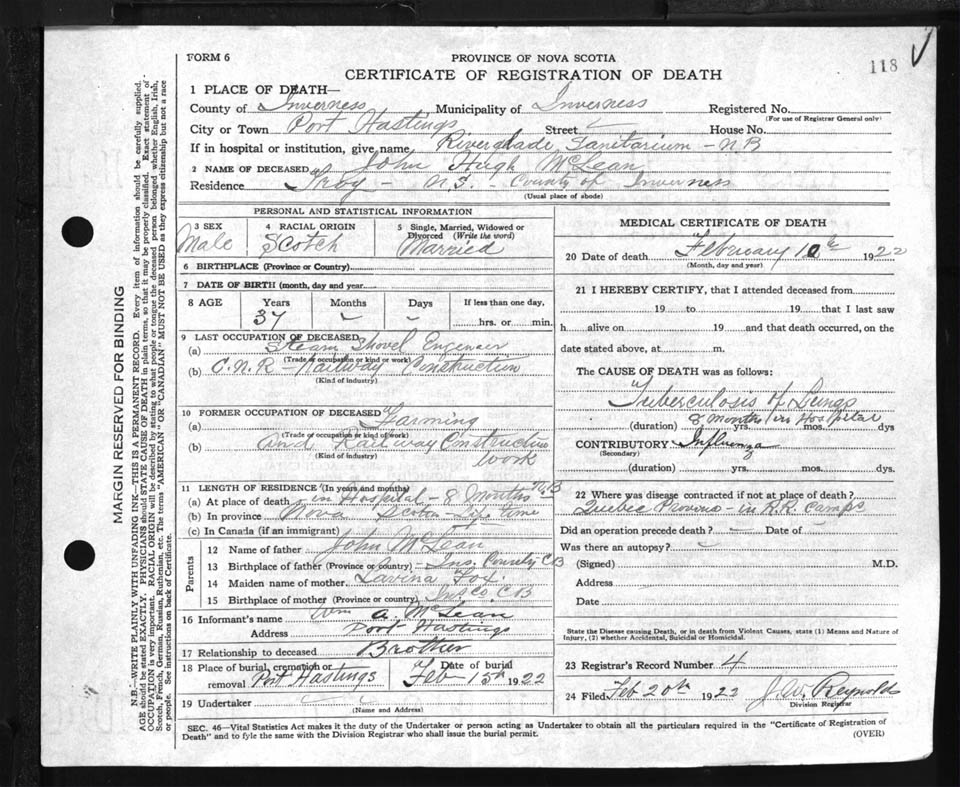 FORM 6
PROVINCE OF NOVA SCOTIA
118
CERTIFICATE OF REGISTRATION OF DEATH
1 PLACE OF DEATH—
County of Inverness Municipality of Inverness Registered No.
(For use of Registrar General only)
City or Town Port Hastings Street House No.
If in hospital or institution, give name Riverglade Sanitarium - N B
2 NAME OF DECEASED John Hugh McLean
Residence Troy - N.S. - County of Inverness
(Usual place of abode)
PERSONAL AND STATISTICAL INFORMATION
3 SEX
Male
4 RACIAL ORIGIN
Scotch
5 Single, Married, Widowed or
Divorced (Write the word)
Married
6 BIRTHPLACE (Province or Country)
7 DATE OF BIRTH (month, day and year)
8 AGE Years Months Days If less than one day,
37 hrs. or min.
9 LAST OCCUPATION OF DECEASED
(a) Steam Shovel Engineer
(Trade or occupation or kind or work)
(b) C.N.R - Railway Construction
(Kind of industry)
10 FORMER OCCUPATION OF DECEASED
(a) Farming
(Trade or occupation or kind of work)
(b) and Railway Construction
work
(Kind of industry)
11 LENGTH OF RESIDENCE (In years and months)
(a) At place of death in Hospital - 8 months N.B
(b) In province Nova Scotia - Life time
(c) In Canada (if an immigrant)
Parents
12 Name of father John McLean
13 Birthplace of father (Province or country) Ins. County C B
14 Maiden name of mother Lavina Fox
15 Birthplace of mother (Province or country) Ins Co. C B
16 Informant's name Wm A. McLean
Address Port Hastings
17 Relationship to deceased Brother
18 Place of burial, cremation or removal Port Hastings
Date of burial Feb 15th 1922
19 Undertaker
(Name and Address)
MEDICAL CERTIFICATE OF DEATH
20 Date of death February 10th 1922
(Month, day and year)
21 I HEREBY CERTIFY, that I attended deceased from
19 to 19 that I last saw
h alive on 19 and that death occurred, on the
date stated above, at m.
The CAUSE OF DEATH was as follows:
Tuberculosis of Lungs
8 months in Hospital
(duration) yrs. mos. dys
CONTRIBUTORY Influenza
(Secondary)
(duration) yrs. mos. dys.
22 Where was disease contracted if not at place of death?
Quebec - in R.R. Camps
Did an operation precede death? Date of
Was there an autopsy?
(Signed) M.D.
Address
Date
State the Disease causing Death, or in death from Violent Causes, state (1) Means and Nature of
Injury, (2) whether Accidental, Suicidal or Homicidal.
23 Registrar's Record Number 4
24 Filed Feb 20th 1922 J. W. Reynolds
Division Registrar
SEC. 46—Vital Statistics Act makes it the duty of the Undertaker or person acting as Undertaker to obtain all the particulars required in the "Certificate of Registration of
Death" and to fyle the same with the Division Registrar who shall issue the burial permit.
(OVER)
MARGIN RESERVED FOR BINDING
N.B.—WRITE PLAINLY WITH UNFADING INK—THIS IS A PERMANENT RECORD. Every item of information should be carefully supplied.
AGE should be stated EXACTLY. PHYSICIANS should STATE CAUSE OF DEATH in plain terms, so that it may be properly classified. Exact statement of
OCCUPATION is very important. RACIAL ORIGIN will be described by stating to what people or tongue the deceased person belonged whether English, Irish,
Scotch, French, German, Russian, Ruthenian, etc. The terms "AMERICAN" OR "CANADIAN" MUST NOT BE USED as they express citizenship but not a race
or people. See instructions on back of Certificate.